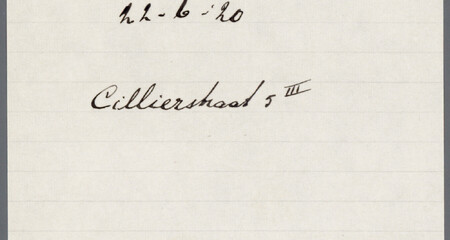 22-6-'20
Cillierstraat 5 III